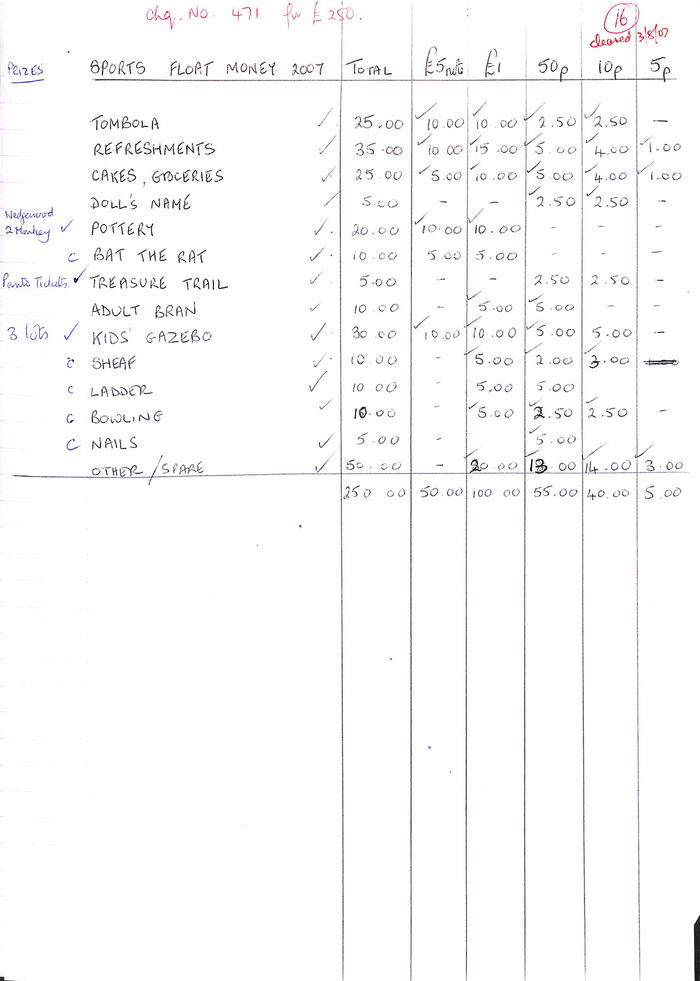 Chq. No. 471 for £250.
16
cleared 3/8/07
PRIZES SPORTS FLOAT MONEY 2007 TOTAL £5 note £1 50p 10p 5p
TOMBOLA ✓ 25.00 ✓10.00 ✓10.00 ✓2.50 ✓2.50 –
REFRESHMENTS ✓ 35.00 ✓10 00 ✓15.00 ✓5.00 ✓4.00 ✓1.00
CAKES, GROCERIES ✓ 25.00 ✓5.00 ✓10.00 ✓5.00 ✓4.00 ✓1.00
DOLL'S NAME ✓ 5.00 – – ✓2.50 ✓2.50 –
Wedgewood
2 Monkey ✓ POTTERY ✓ 20.00 ✓10.00 ✓10.00 – – –
C BAT THE RAT ✓ 10.00 5.00 5.00 – – –
Panto Tickets. ✓ TREASURE TRAIL ✓ 5.00 2.50 2.50 –
ADULT BRAN ✓ 10.00 ✓5.00 ✓5.00 – –
3 lots ✓ KIDS' GAZEBO ✓ 30.00 ✓10.00 ✓10.00 ✓5.00 5.00 –
C SHEAF ✓ 10.00 – ✓5.00 ✓2.00 ✓3.00
C LADDER ✓ 10 00 – 5.00 5.00
C BOWLING ✓ 10.00 – ✓5.00 ✓2.50 2.50 –
C NAILS ✓ 5.00 – ✓5.00
OTHER / SPARE ✓ 50.00 – ✓20.00 ✓13 00 ✓14.00 ✓3.00
250 00 50.00 100 00 55.00 40.00 5.00